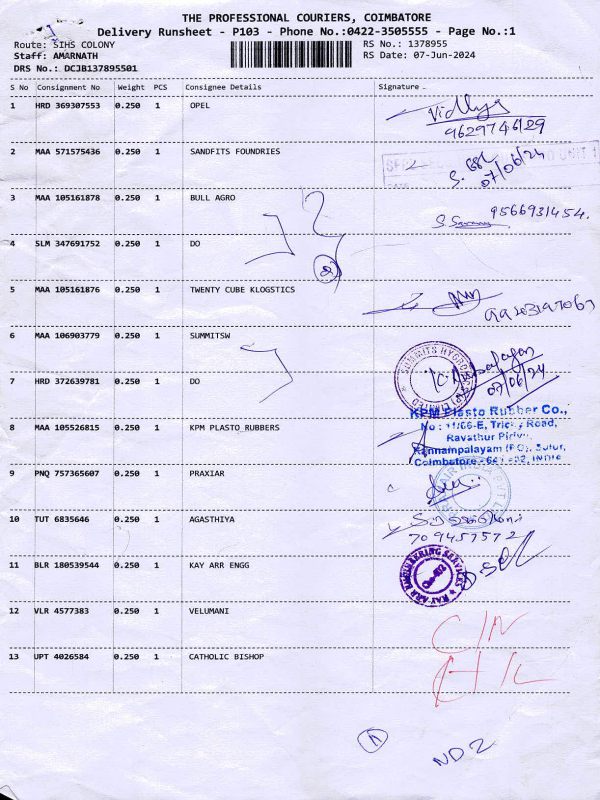 THE PROFESSIONAL COURIERS, COIMBATORE
Delivery Runsheet - P103 - Phone No.:0422-3505555 - Page No.:1
Route: SIHS COLONY
RS No.: 1378955
Staff: AMARNATH
RS Date: 07-Jun-2024
DRS No.: DCJB137895501
S No Consignment No Weight PCS Consignee Details Signature
1 HRD 369307553 0.250 1 OPEL
Vidhya
9629746129
2 MAA 571575436 0.250 1 SANDFITS FOUNDRIES
07/06/24
3 MAA 105161878 0.250 1 BULL AGRO
9566931454.
4 SLM 347691752 0.250 1 DO
2
5 MAA 105161876 0.250 1 TWENTY CUBE KLOGSTICS
6 MAA 106903779 0.250 1 SUMMITSW
07/06/24
7 HRD 372639781 0.250 1 DO
KPM Plasto Rubber Co.,
8 MAA 105526815 0.250 1 KPM PLASTO_RUBBERS
No : 11/66-E, Trichy Road,
Ravathur Pirivu,
Kannampalayam (PO), Sulur,
Coimbatore - 641 402, INDIA
9 PNQ 757365607 0.250 1 PRAXIAR
10 TUT 6835646 0.250 1 AGASTHIYA
7094517572
11 BLR 180539544 0.250 1 KAY ARR ENGG
KAY ARR ENGINEERING SERVICES
12 VLR 4577383 0.250 1 VELUMANI
C/N
13 UPT 4026584 0.250 1 CATHOLIC BISHOP
ND2